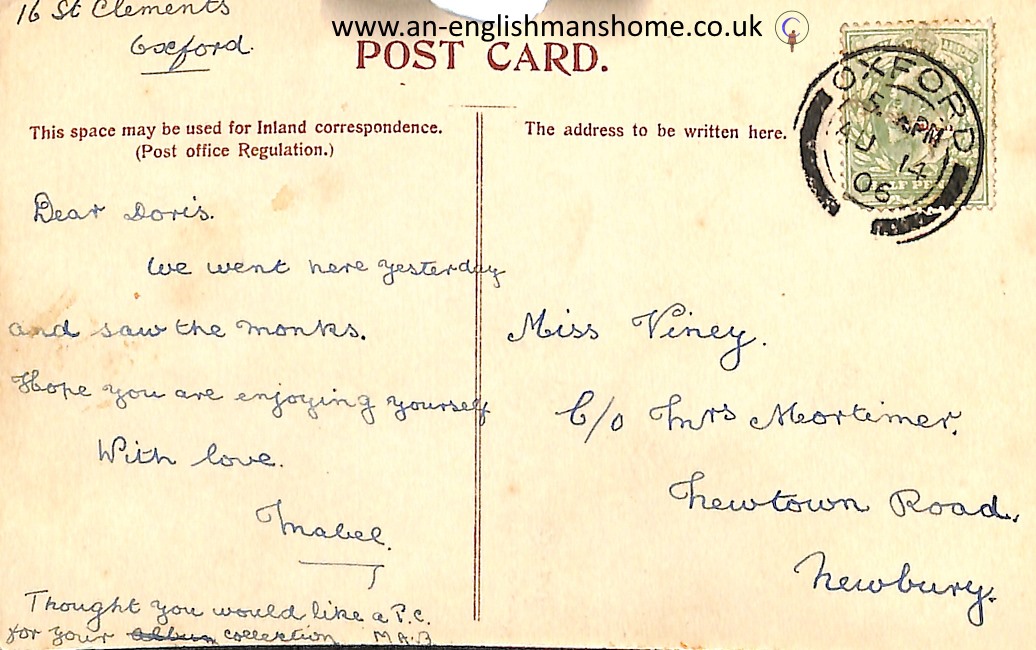 16 St Clements
Oxford.
www.an-englishmanshome.co.uk
POST CARD.
This space may be used for Inland correspondence.
(Post office Regulation.)
The address to be written here.
OXFORD
PM
AU 14
06
Dear Doris.
We went here yesterday
and saw the monks.
Hope you are enjoying yourself
With love.
Mabel.
Thought you would like a P.C.
for your album collection M.A.B
Miss Viney.
C/o Mrs Mortimer.
Newtown Road.
Newbury.